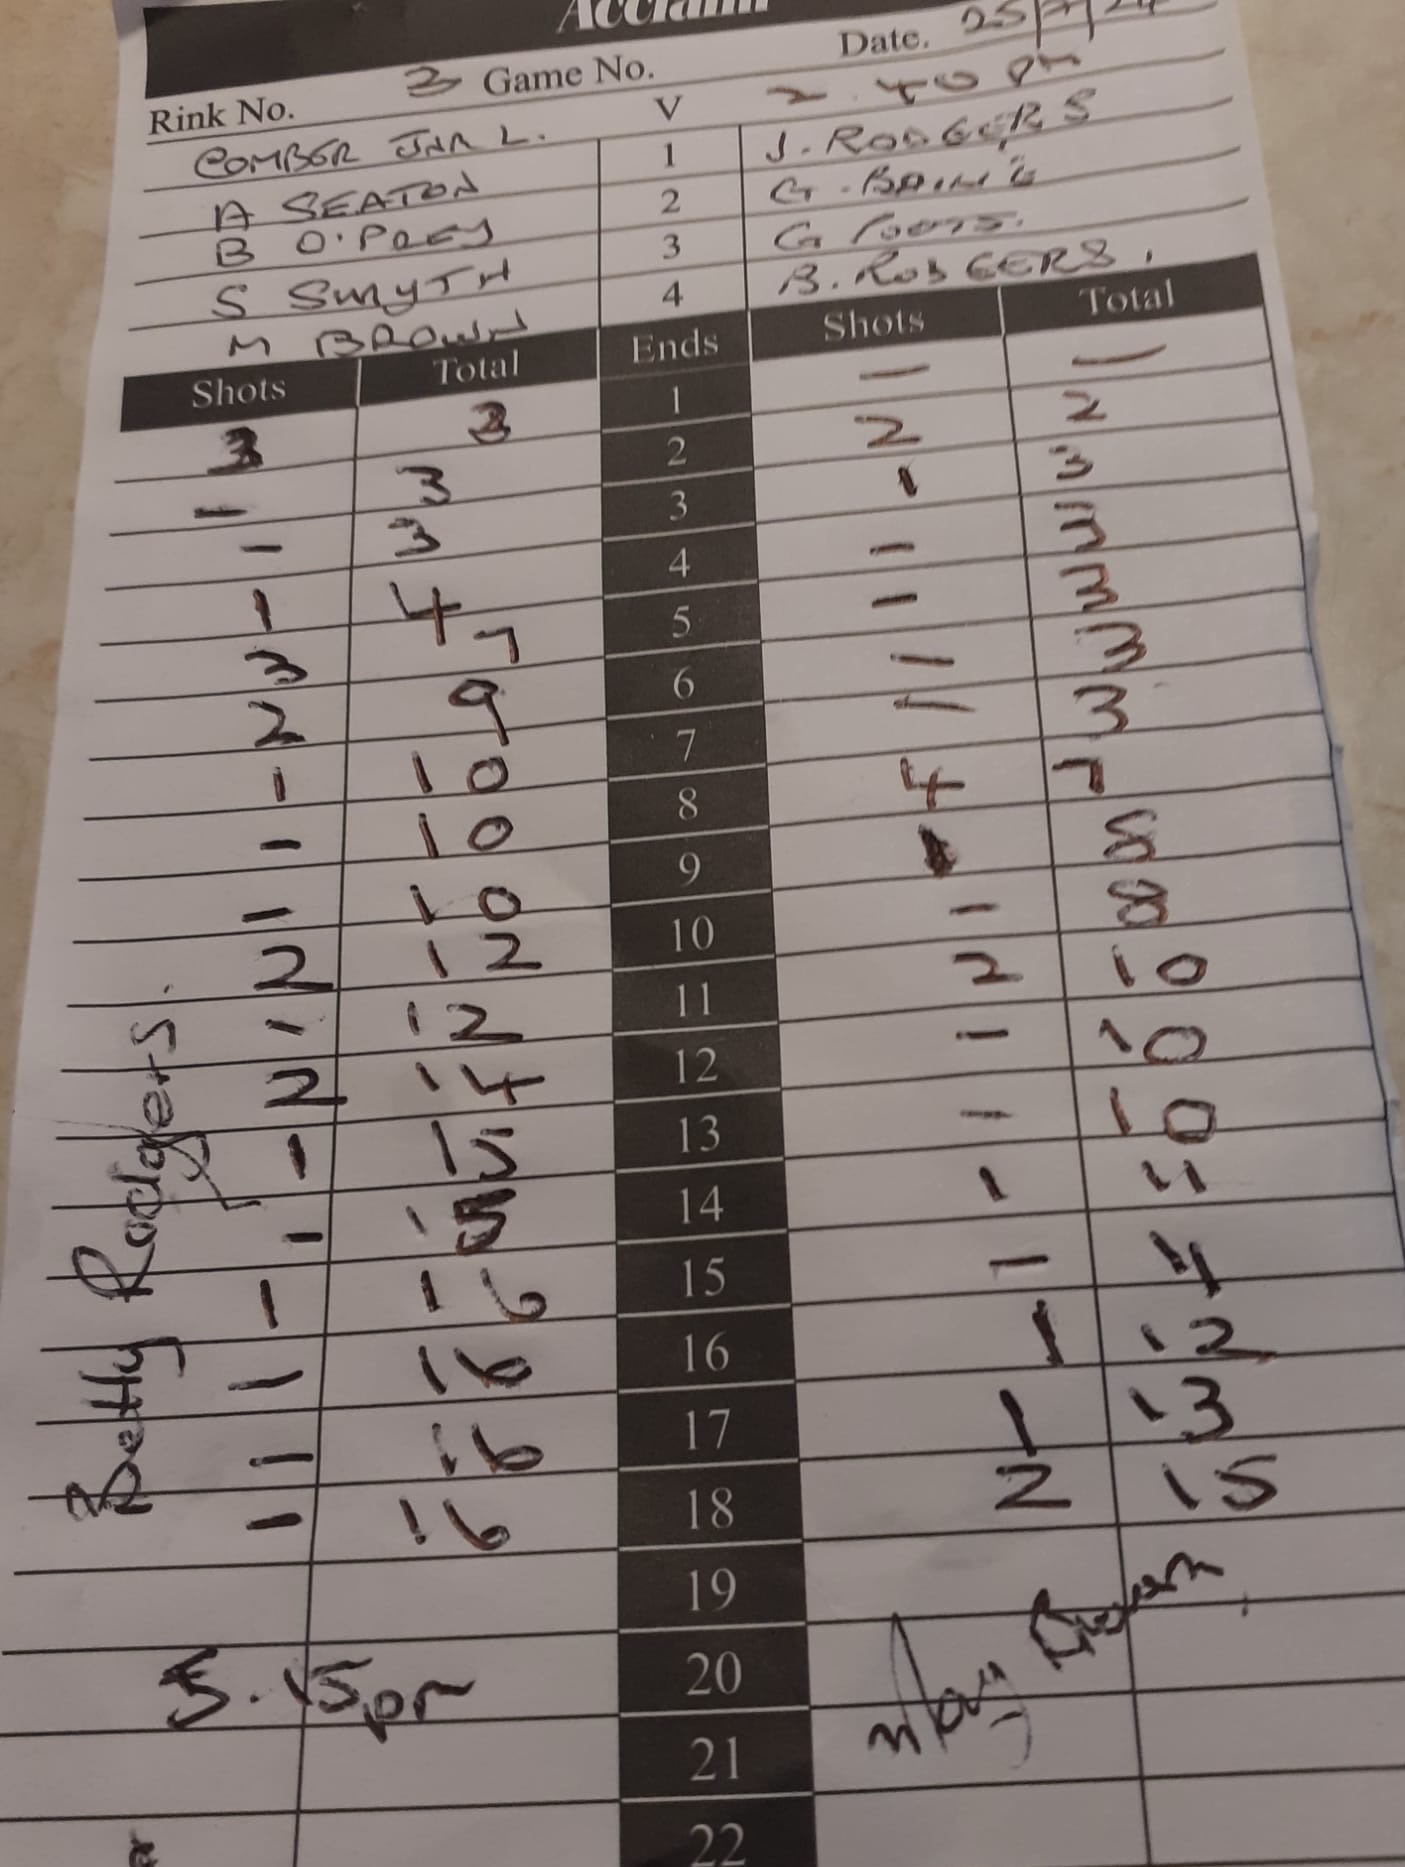 Acclaim
Rink No. 3 Game No. Date. 25/7/24
V 2.40 pm
COMBER JNR L.
A SEATON 1 J. RODGERS
B O'PREY 2
S SMYTH 3 G
M BROWN 4 B. RODGERS.
Shots Total Ends Shots Total
3 3 1 - -
- 3 2 2 2
- 3 3 1 3
1 4 4 - 3
3 7 5 - 3
2 9 6 - 3
1 10 7 - 3
- 10 8 4 7
- 10 9 1 8
2 12 10 - 8
- 12 11 2 10
2 14 12 - 10
1 15 13 - 10
- 15 14 1 11
1 16 15 - 11
- 16 16 1 12
- 16 17 1 13
- 16 18 2 15
19
20
21
22
Betty Rodgers.
5.15pm
May Brown